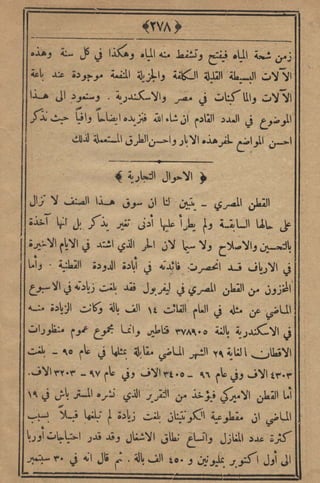 ﴿٢٧٨﴾
زمن شحة المياه فيفتح وتشفط منه المياه وهكذا في كل سنة وهذه
الآلات البسيطة القليلة الكلفة والجزيلة المنفعة موجودة عند باعة
الآلات والماكينات في مصر والاسكندرية . وسنعود الى هذا
الموضوع في العدد القادم ان شاء الله فنزيده ايضاحاً وافياً حيث نذكر
احسن المواضع لحفر هذه الابار واحسن الطرق المستعملة لذلك
﴿ الاحوال التجارية ﴾
القطن المصري - يتبين لنا ان سوق هذا الصنف لا تزال
على حالها السابقة ولم يطرأ عليها أدنى تغير يذكر بل انها آخذة
بالتحسين والاصلاح ولا سيما لان الحر الذي اشتد في الايام الاخيرة
في الارياف قد انحصرت فائدته في أبادة الدودة القطنية . وأما
المخزون من القطن المصري في ليفربول فقد بلغت زيادته في الاسبوع
الماضي عن مثله في العام الفائت ١٤ الف بالة وكانت الزيادة منه
في الاسكندرية بالغة ٣٧٨٩٠٥ قناطير وانما مجموع عموم منظورات
الاقطان لغاية ٢٩ الشهر الماضي مقابلة بمثلها في عام ٩٥ - بلغت
٤٣٠٣ الاف وفي عام ٩٦ - ٣٤٠٥ الاف وفي عام ٩٧ - ٣٢٠٣ الاف.
أما القطن الاميركي فيؤخذ من التقرير الذي نشره المستر باش في ١٩
الماضي ان مقطوعية الكونتينان بلغت زيادة لم تبلغها قبلاً بسبب
كثرة عدد المغازل واتساع نطاق الاشغال وقد قدر احتياجات أوربا
الى أول اكتوبر بمليونين و ٤٥٠ الف بالة . ثم قال انه في ٣٠ سبتمبر